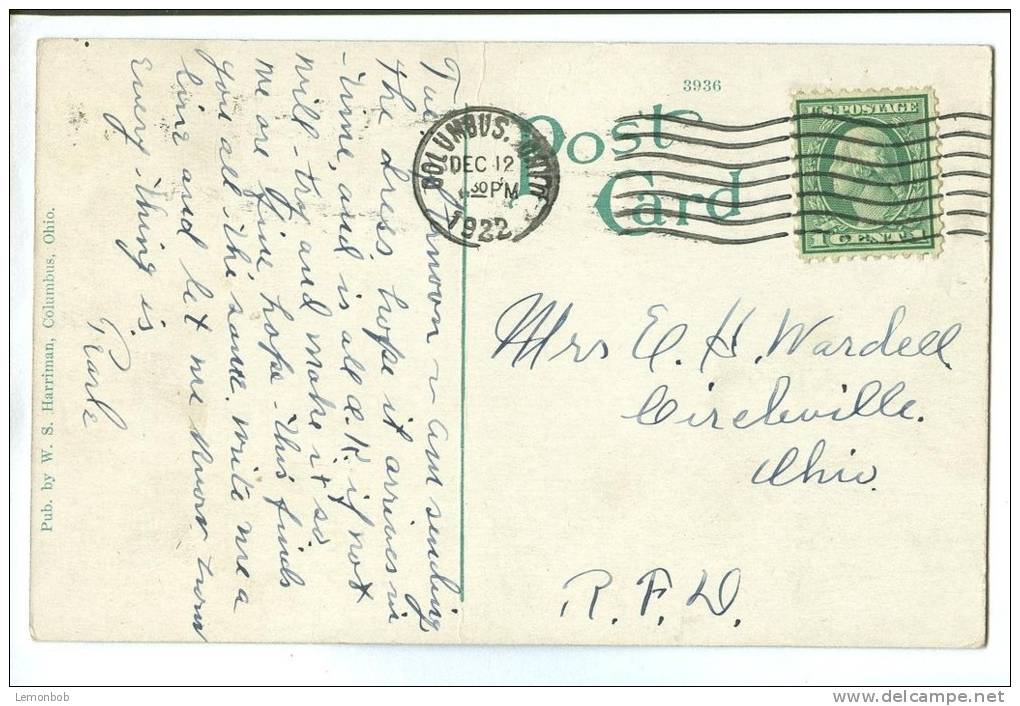 3936
Post
Card
U.S. POSTAGE
1 CENT 1
COLUMBUS, OHIO
DEC 12
30 PM
1922
Tue. afternoon ~ am sending
the dress, hope it arrives in
time, and is all o.k. if not
will try and make it so
me are fine hope this finds
you all the same. write me a
line and let me know how
every thing is.
Pearle
Mrs E. H. Wardell
Circleville.
Ohio.
R. F. D.
Pub. by W. S. Harriman, Columbus, Ohio.
LemonBob
http://lemonbob.delcampe.net